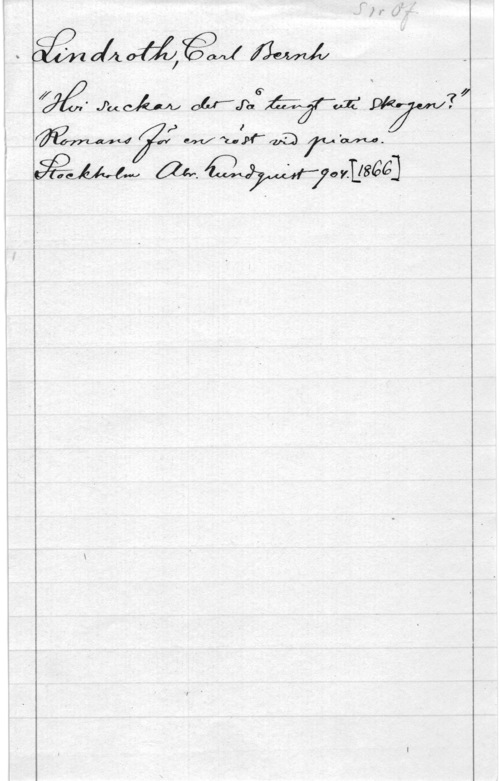 S 1 r Pf.
Lindroth, Carl Bernh
"Hvi suckar det så tungt uti skogen?"
Romans för en röst vid piano.
Stockholm Abr. Lundquist 904. [1866]